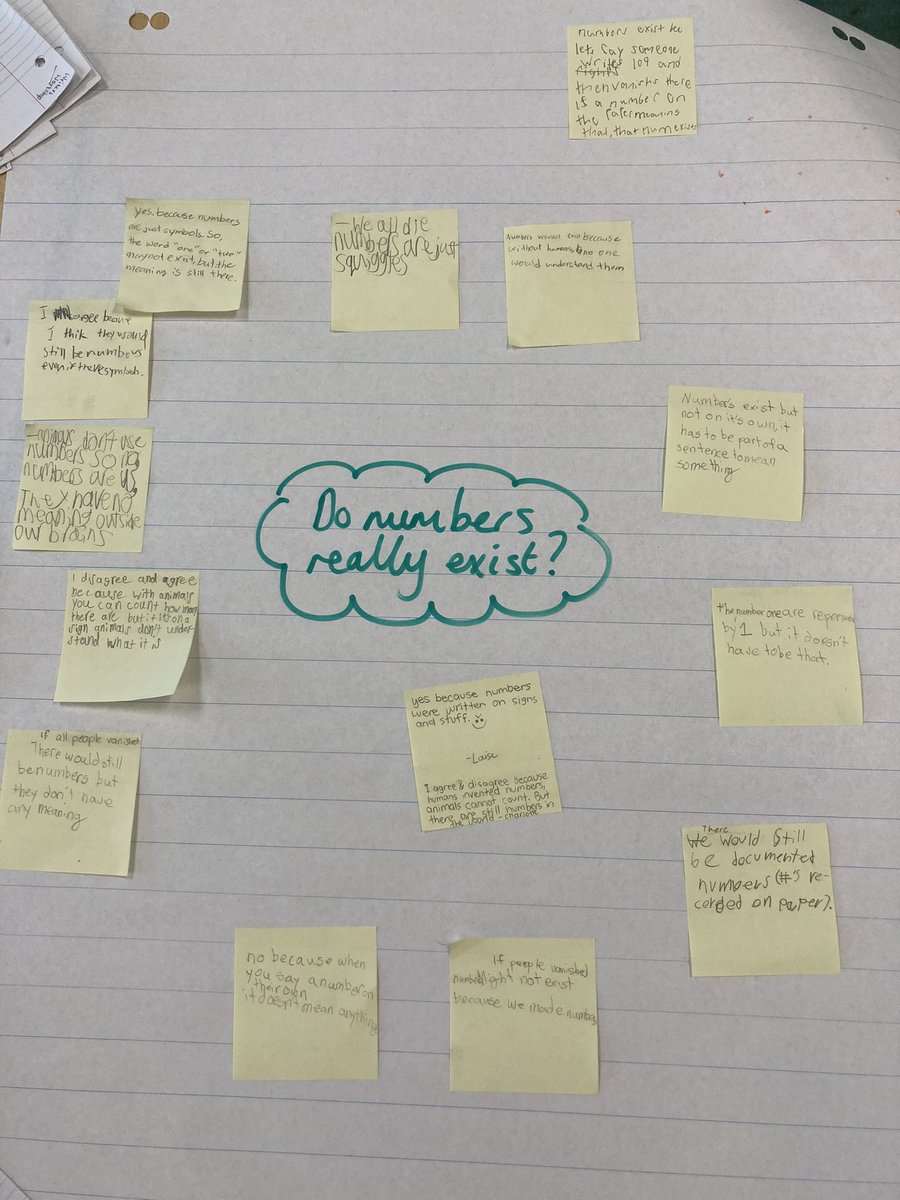 numbers exist bc
lets say someone
writes 109 and
then vanishs there
is a number on
the paper meaning
that, that num exists
Yes, because numbers
are just symbols. So,
the word "one" or "two"
may not exist, but the
meaning is still there.
-We all die
numbers are just
squiggles
Numbers wouldnt exist because
without humans, no one
would understand them
I agree because
I thik they would
still be numbers
even if there symbols.
Number's exist but
not on it's own, it
has to be part of a
sentence to mean
something
numbers so no,
numbers are us,
They have no
meaning outside
our brains
Do numbers
really exist?
I disagree and agree
because with animals
you can count how many
there are but if it on a
sign animals don't under-
stand what it is
The number one are represend
by 1 but it doesn't
have to be that.
yes because numbers
were written on signs
and stuff.
-Louise
I agree & disagree because
humans invented numbers,
animals cannot count. But
there are still numbers in
the world - charlotte
if all people vanished
There would still
be numbers but
they don't have
any meaning
There
We would still
be documented
numbers (#'s re-
corded on paper).
no because when
you say a number on
their own
it doesn't mean anything
If people vanished
numbers might not exist
because we made numbers